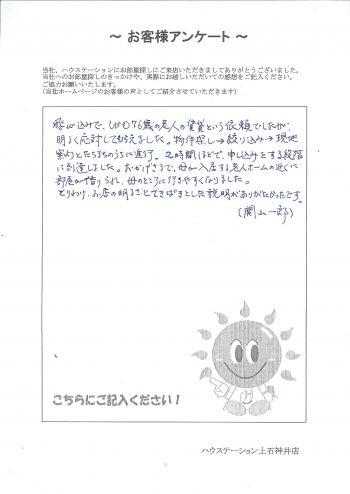 ～ お客様アンケート ～
当社、ハウステーションにお部屋探しにご来店いただきましてありがとうございました。
当社へのお部屋探しのきっかけや、実際にお越しいただいての感想をご記入ください。
ご協力お願いいたします。
(当社ホームページのお客様の声としてご紹介させていただきます)
飛び込みで、しかも76歳の老人の賃貸という依頼でしたが、
明るく応対してもらえました。物件探し→絞り込み→現地
案内とたちまちのうちに進行。2時間ほどで、申し込みをする段階
に到達しました。おかげさまで、母が入居する老人ホームの近くに
部屋が借りられ、母のところに行きやすくなりました。
とりわけ、お店の明るさとてきぱきとした説明がありがたかったです。
(関山一郎)
こちらにご記入ください!
ハウステーション上石神井店